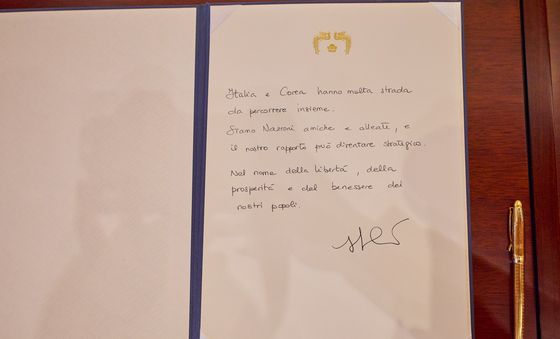 Italia e Corea hanno molta strada
da percorrere insieme.
Siamo Nazioni amiche e alleate, e
il nostro rapporto può diventare strategico.
Nel nome della libertá, della
prosperitá e del benessere dei
nostri popoli.